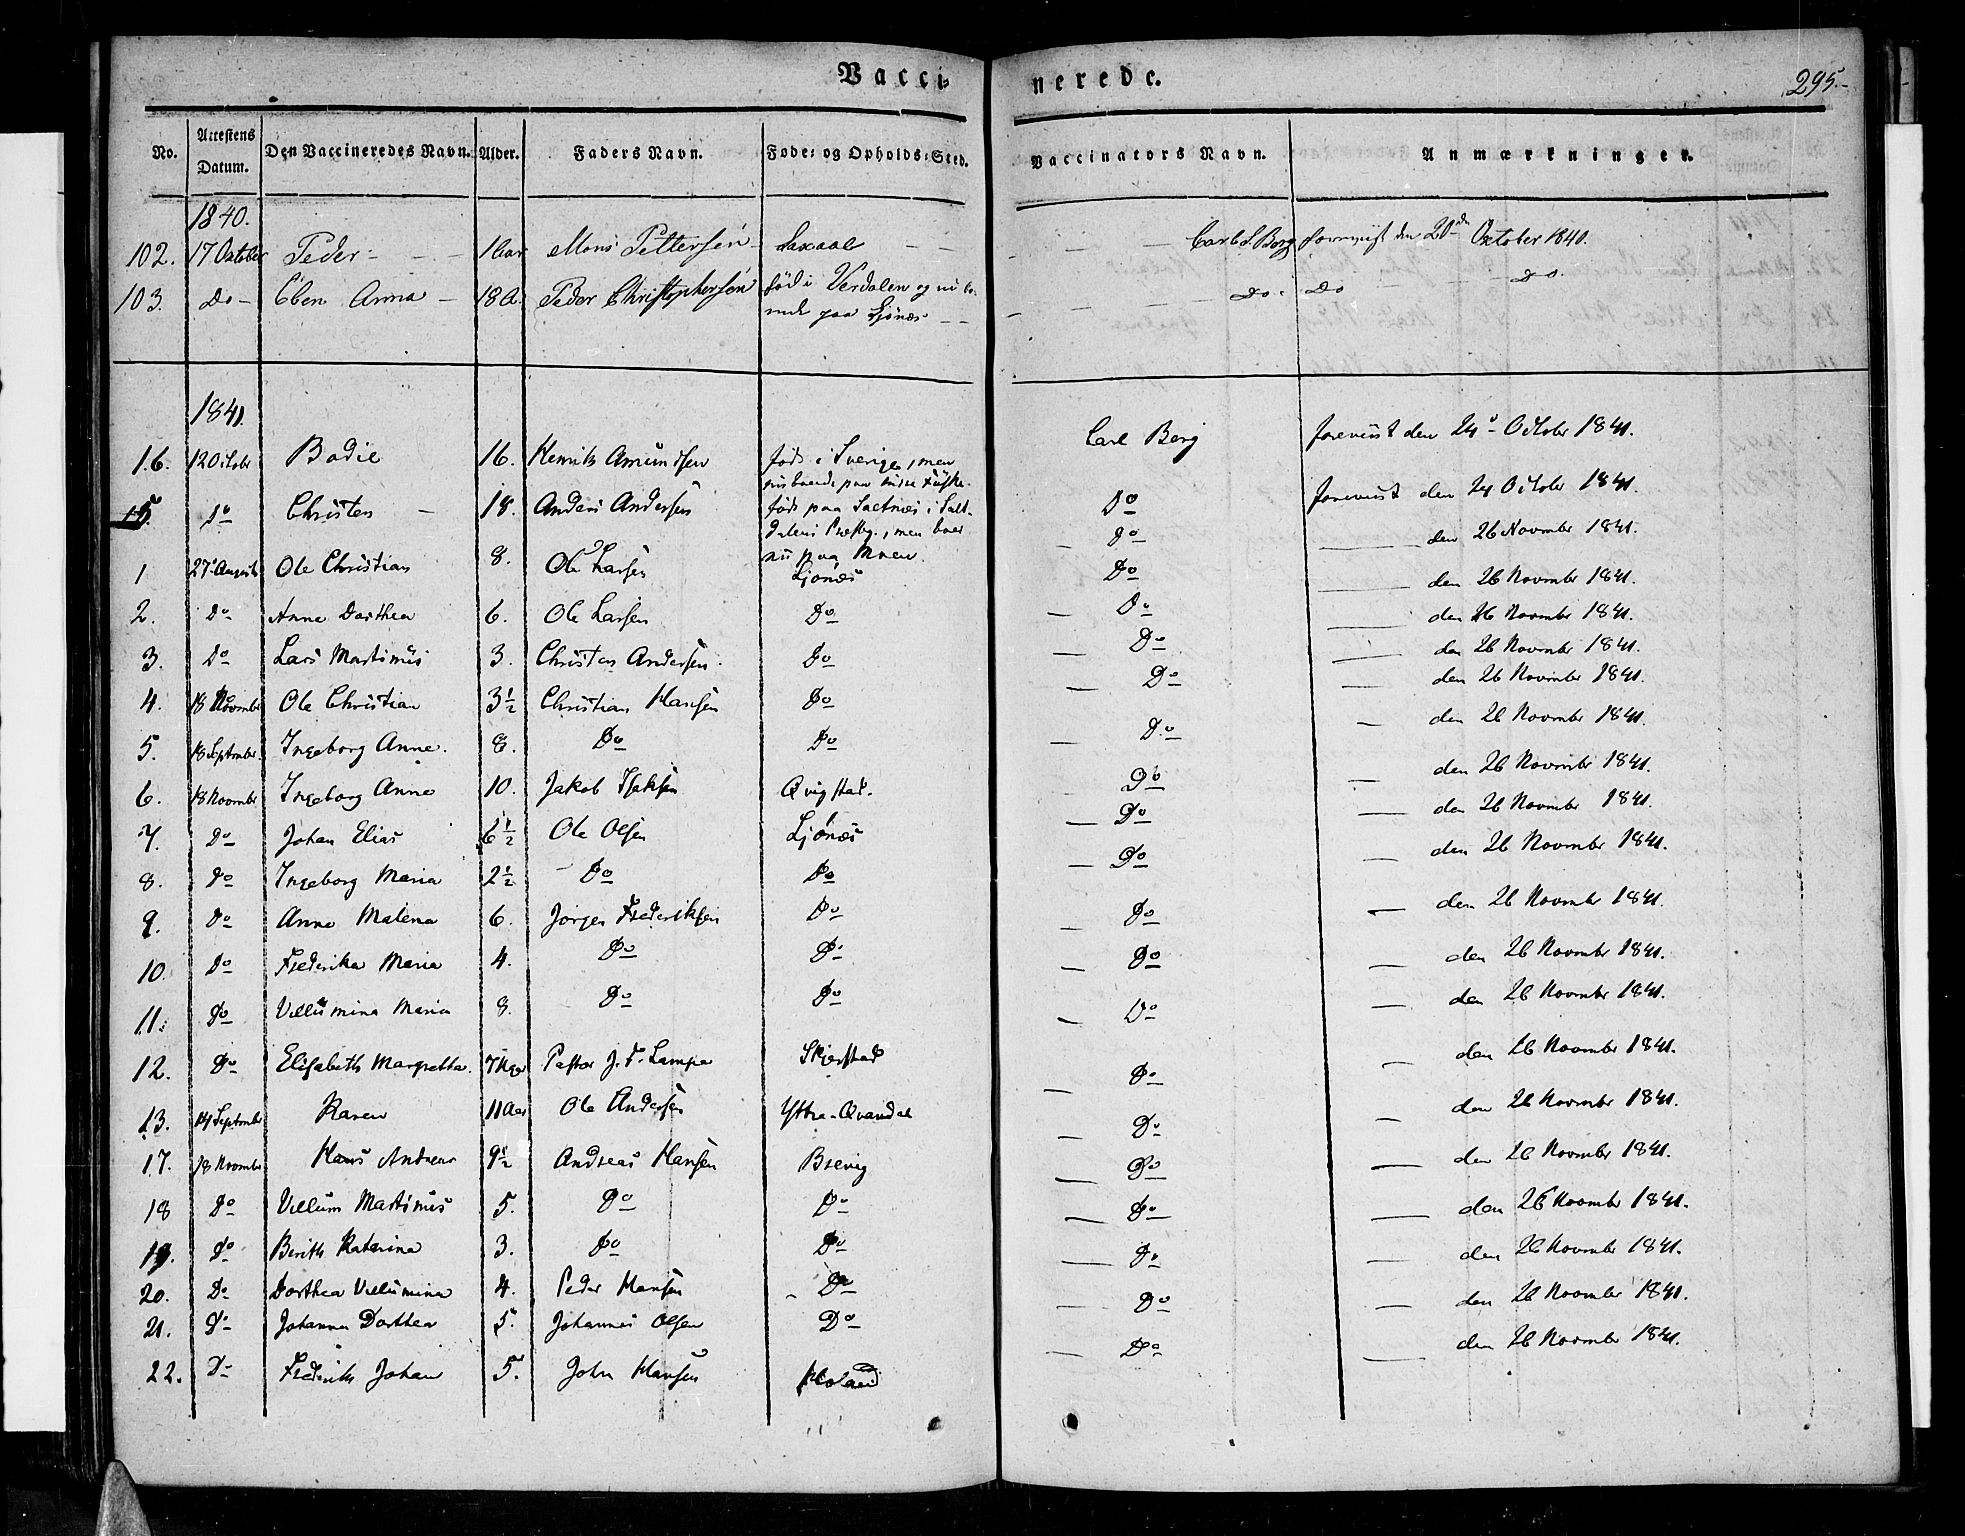 Vaccinerede. 295.
No. Attestens Datum. Den Vaccineredes Navn. Alder. Faders Navn. Føde: og Opholds: Sted. Vaccinators Navn. Anmærkninger.
1840.
102. 17 October Peder 1 Aar Mons Pettersen Saxaae Carl L Berg den 20de October 1840.
103. Do Eben Anna 18 A. Peder Christophersen fød i Verdalen og nu boende paa Ljønæs Do Do Do
1841.
16. 12 October Bodie 16. Henrik Amundsen føds i Sverige, men Carl Berg foreviist den 24 October 1841.
15. Do Christen 18. Anders Andersen føds paa Saetnæs i Saltdalens Præstg., men boer nu paa Moen Do foreviist den 24 October 1841.
1 27 August Ole Christian 8. Ole Larsen Ljønæs Do den 26 November 1841.
2. Do Anne Dorthea 6. Ole Larsen Do Do den 26 November 1841.
3. Do Lars Martinus 3. Christen Andersen Do Do den 26 November 1841.
4. 18 November Ole Christian 3½ Christian Hansen Do Do den 26 November 1841.
5. 18 September Ingeborg Anne. 8. Do Do Do den 26 November 1841.
6. 18 November Ingeborg Anne 10. Jakob Isaksen Qvigstad. Do den 26 November 1841.
7. Do Johan Elias 6½ Ole Olsen Ljønæs Do den 26 November 1841.
8. Do Ingeborg Maria 2½ Do Do Do den 26 November 1841.
9. Do Anne Malena 6. Jørgen Frederiksen Do Do den 26 November 1841.
10. Do Frederika Maria 4. Do Do Do den 26 November 1841.
11. Do Villumina Maria 8. Do Do Do den 26 November 1841.
12. Do Elisabeth Margretha. 7 Uger Pastor J. F. Lampe Skjerstad Do den 26 November 1841.
13. 14 September Karen 11 Aar Ole Andersen Yttre-Qvandal Do den 26 November 1841.
17. 18 November Hans Andreas 9½ Andreas Hansen Brevig Do den 26 November 1841.
18 Do Villum Martinus 5. Do Do Do den 26 November 1841.
19. Do Berith Katarina 3. Do Do Do den 26 November 1841.
20. Do Dorthea Villumina 4. Peder Hansen Do Do den 26 November 1841.
21. Do Johanna Dorthea 5. Johannes Olsen Do Do den 26 November 1841.
22. Do Frederik Johan 5. John Hansen